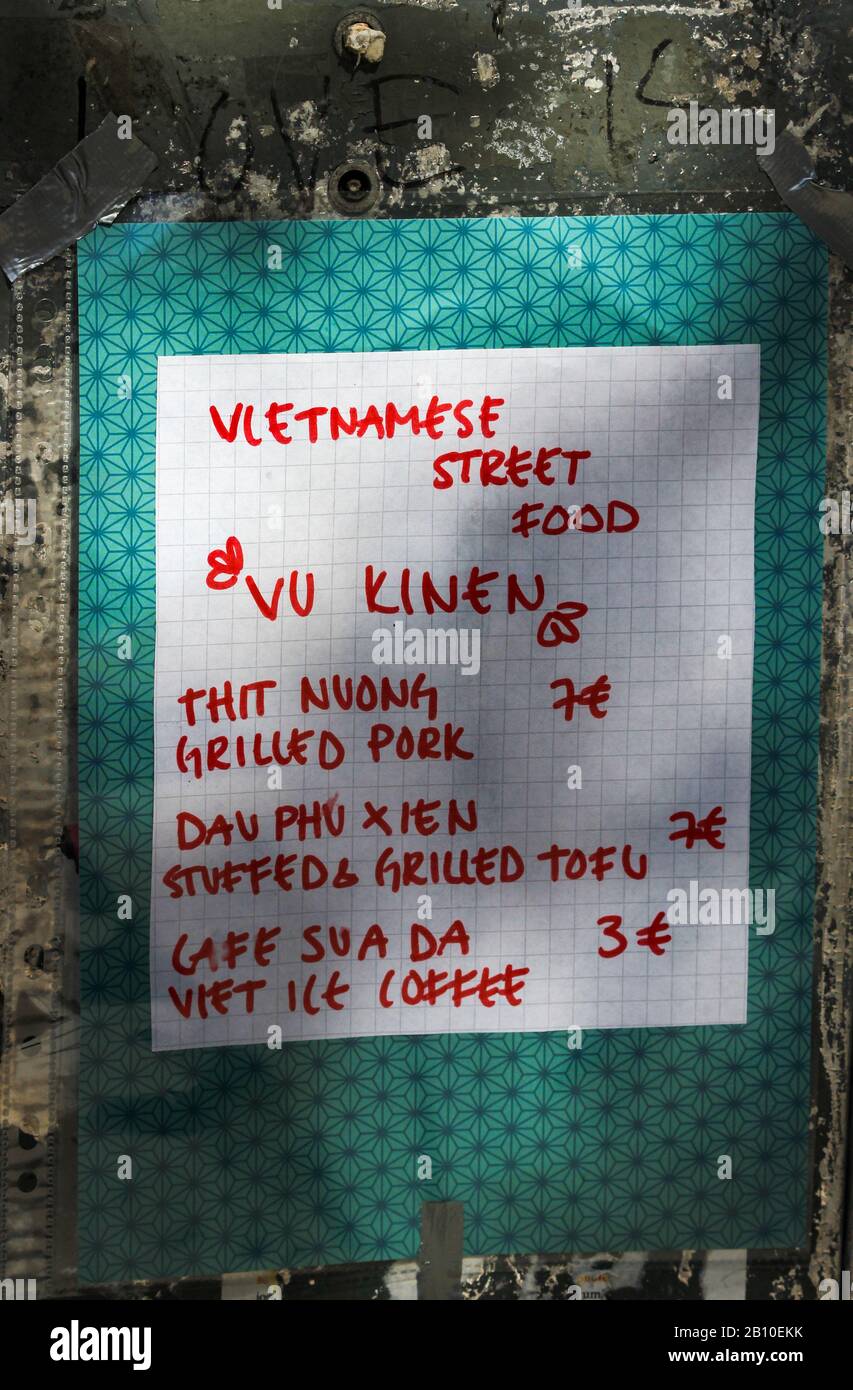 LOVE IS
VIETNAMESE
STREET
FOOD
VU KINEN
THIT NUONG 7€
GRILLED PORK
DAU PHU XIEN 7€
STUFFED & GRILLED TOFU
CAFE SUA DA 3€
VIET ICE COFFEE
alamy
Image ID: 2B10EKK
www.alamy.com